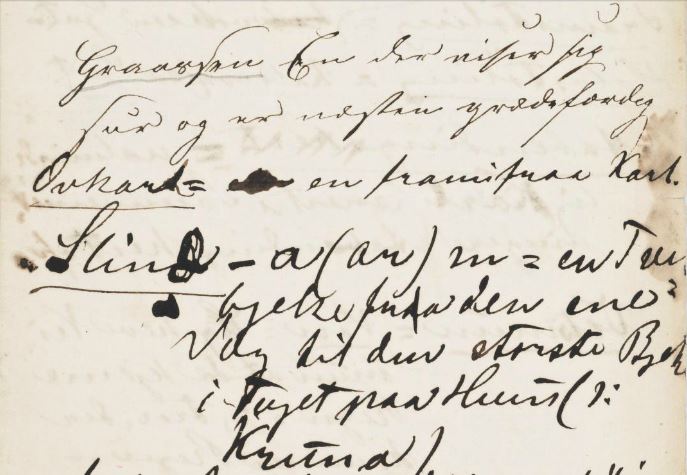 Graarsen En der viser sig
sur og er næsten grædefærdig
Ovkarl = en framifraa Karl.
Slind - a (ar) m = en Tver
bjelke fra den ene
Væg til den største Bjelk
i Taget paa Huus (ɔ:
Kruna)